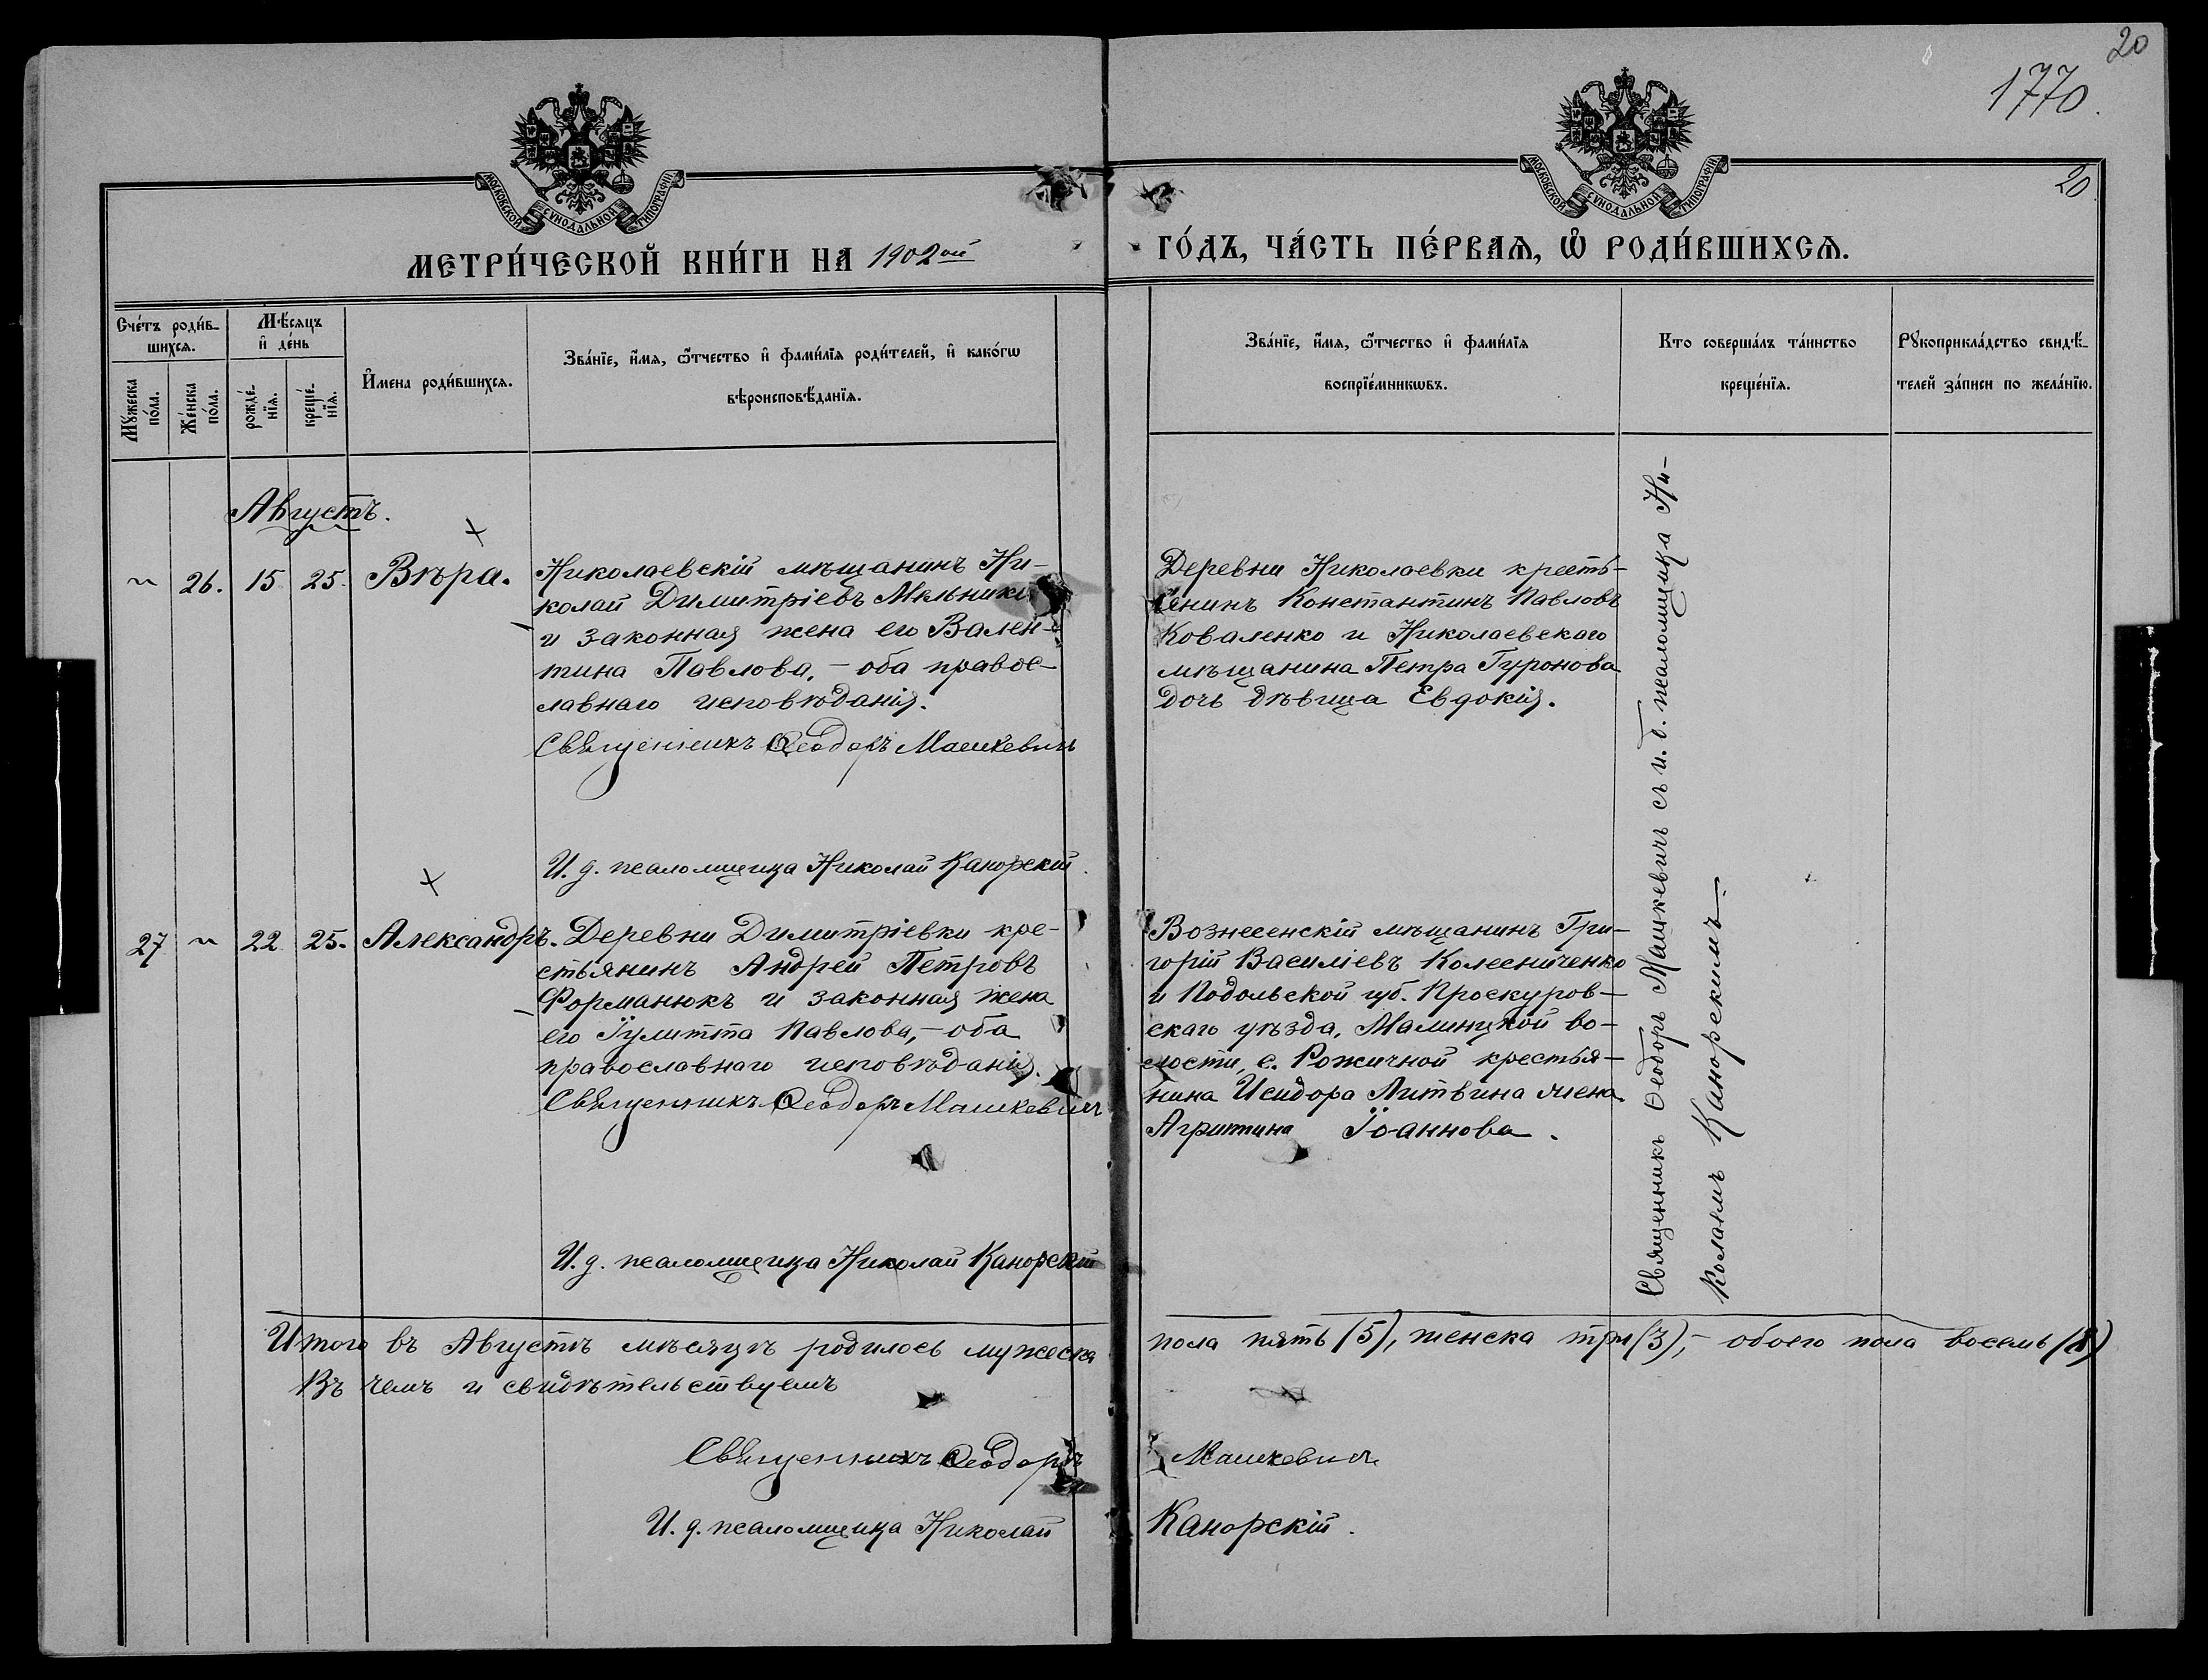 20
1770.
20
МОСКОВСКОЙ СѴНОДАЛЬНОЙ ТИПОГРАФІИ
МОСКОВСКОЙ СѴНОДАЛЬНОЙ ТИПОГРАФІИ
МЕТРИ́ЧЕСКОЙ КНИ́ГИ НА 1902ой ГО́ДЪ, ЧА́СТЬ ПЕ́РВАѦ, Ѡ҆ РОДИ́ВШИХСѦ.
Сче́тъ роди́в-
шихсѧ.
Мꙋ́жеска по́ла.
Же́нска по́ла.
Мѣ́сѧцъ
и҆ де́нь
рожде́-
нїѧ.
креще́-
нїѧ.
И҆мена роди́вшихсѧ.
Зва́нїе, и҆́мѧ, ѻ҆́тчество и҆ фами́лїѧ роди́телей, и҆ како́гѡ
вѣроисповѣ́данїѧ.
Зва́нїе, и҆́мѧ, ѻ҆́тчество и҆ фами́лїѧ
воспрїе́мникѡвъ.
Кто соверша́лъ та́инство
креще́нїѧ.
Рꙋкоприкла́дство свидѣ́-
телей за́писи по жела́нїю.
Августъ.
26. 15 25. Вѣра.
Николаевскій мѣщанинъ Ни-
колай Димитріевъ Мельнико
и законная жена его Вален-
тина Павлова, - оба правос-
лавнаго исповѣданія.
Священникъ Ѳеодоръ Машкевичъ
И. д. псаломщика Николай Канорскій.
Деревни Николаевки кресть-
янинъ Константинъ Павловъ
Коваленко и Николаевскаго
мѣщанина Петра Гуронова
дочь дѣвица Евдокія.
27 22 25. Александръ.
Деревни Димитріевки кре-
стьянинъ Андрей Петровъ
Форманюкъ и законная жена
его Іулитта Павлова, - оба
православнаго исповѣданія.
Священникъ Ѳеодоръ Машкевичъ
И. д. псаломщика Николай Канорскій
Вознесенскій мѣщанинъ Гри-
горій Василіевъ Колесниченко
и Подольской губ. Проскуров-
скаго уѣзда, Малиницкой во-
лости, с. Рожичной крестья-
нина Исидора Литвина жена
Агрипина Іоаннова.
Священникъ Ѳеодоръ Машкевичъ съ и. д. псаломщика Ни-
колаемъ Канорскимъ.
Итого въ Августѣ мѣсяцѣ родилось мужеска пола пять (5), женска три (3), - обоего пола восемь (8)
Въ чемъ и свидѣтельствуемъ
Священникъ Ѳеодоръ Машкевичъ
И. д. псаломщика Николай Канорскій.